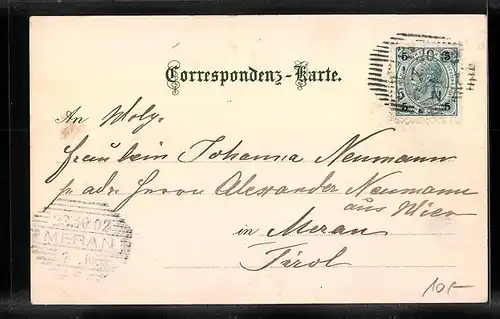 Correspondenz-Karte.
5 5
5 5
An Wolg.
Fräulein Johanna Neumann
p. adr. Herrn Alexander Neumann
aus Wien
in Meran
Tirol
23.10.02
MERAN
10.-